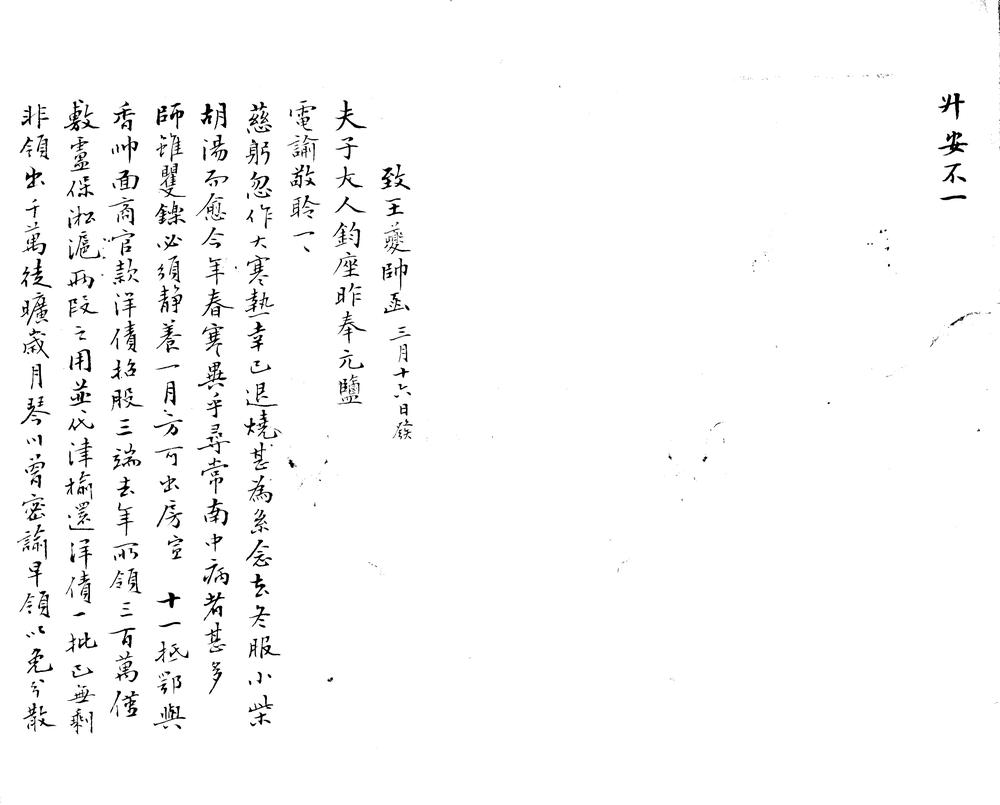 升安不一
致王夔帥函 三月十六日發
夫子大人鈞座昨奉元鹽
電諭敬聆一、
慈躬忽作大寒熱幸已退燒甚為系念去冬服小柴
胡湯而愈今年春寒異乎尋常南中病者甚多
師雖矍鑠必須靜養一月方可出房宣 十一抵鄂與
香帥面商官款洋債招股三端去年所領三百萬僅
敷盧保淞滬兩段之用並代津榆還洋債一批已無剩
非領出千萬徒曠歲月琴川曾密諭早領以免分散